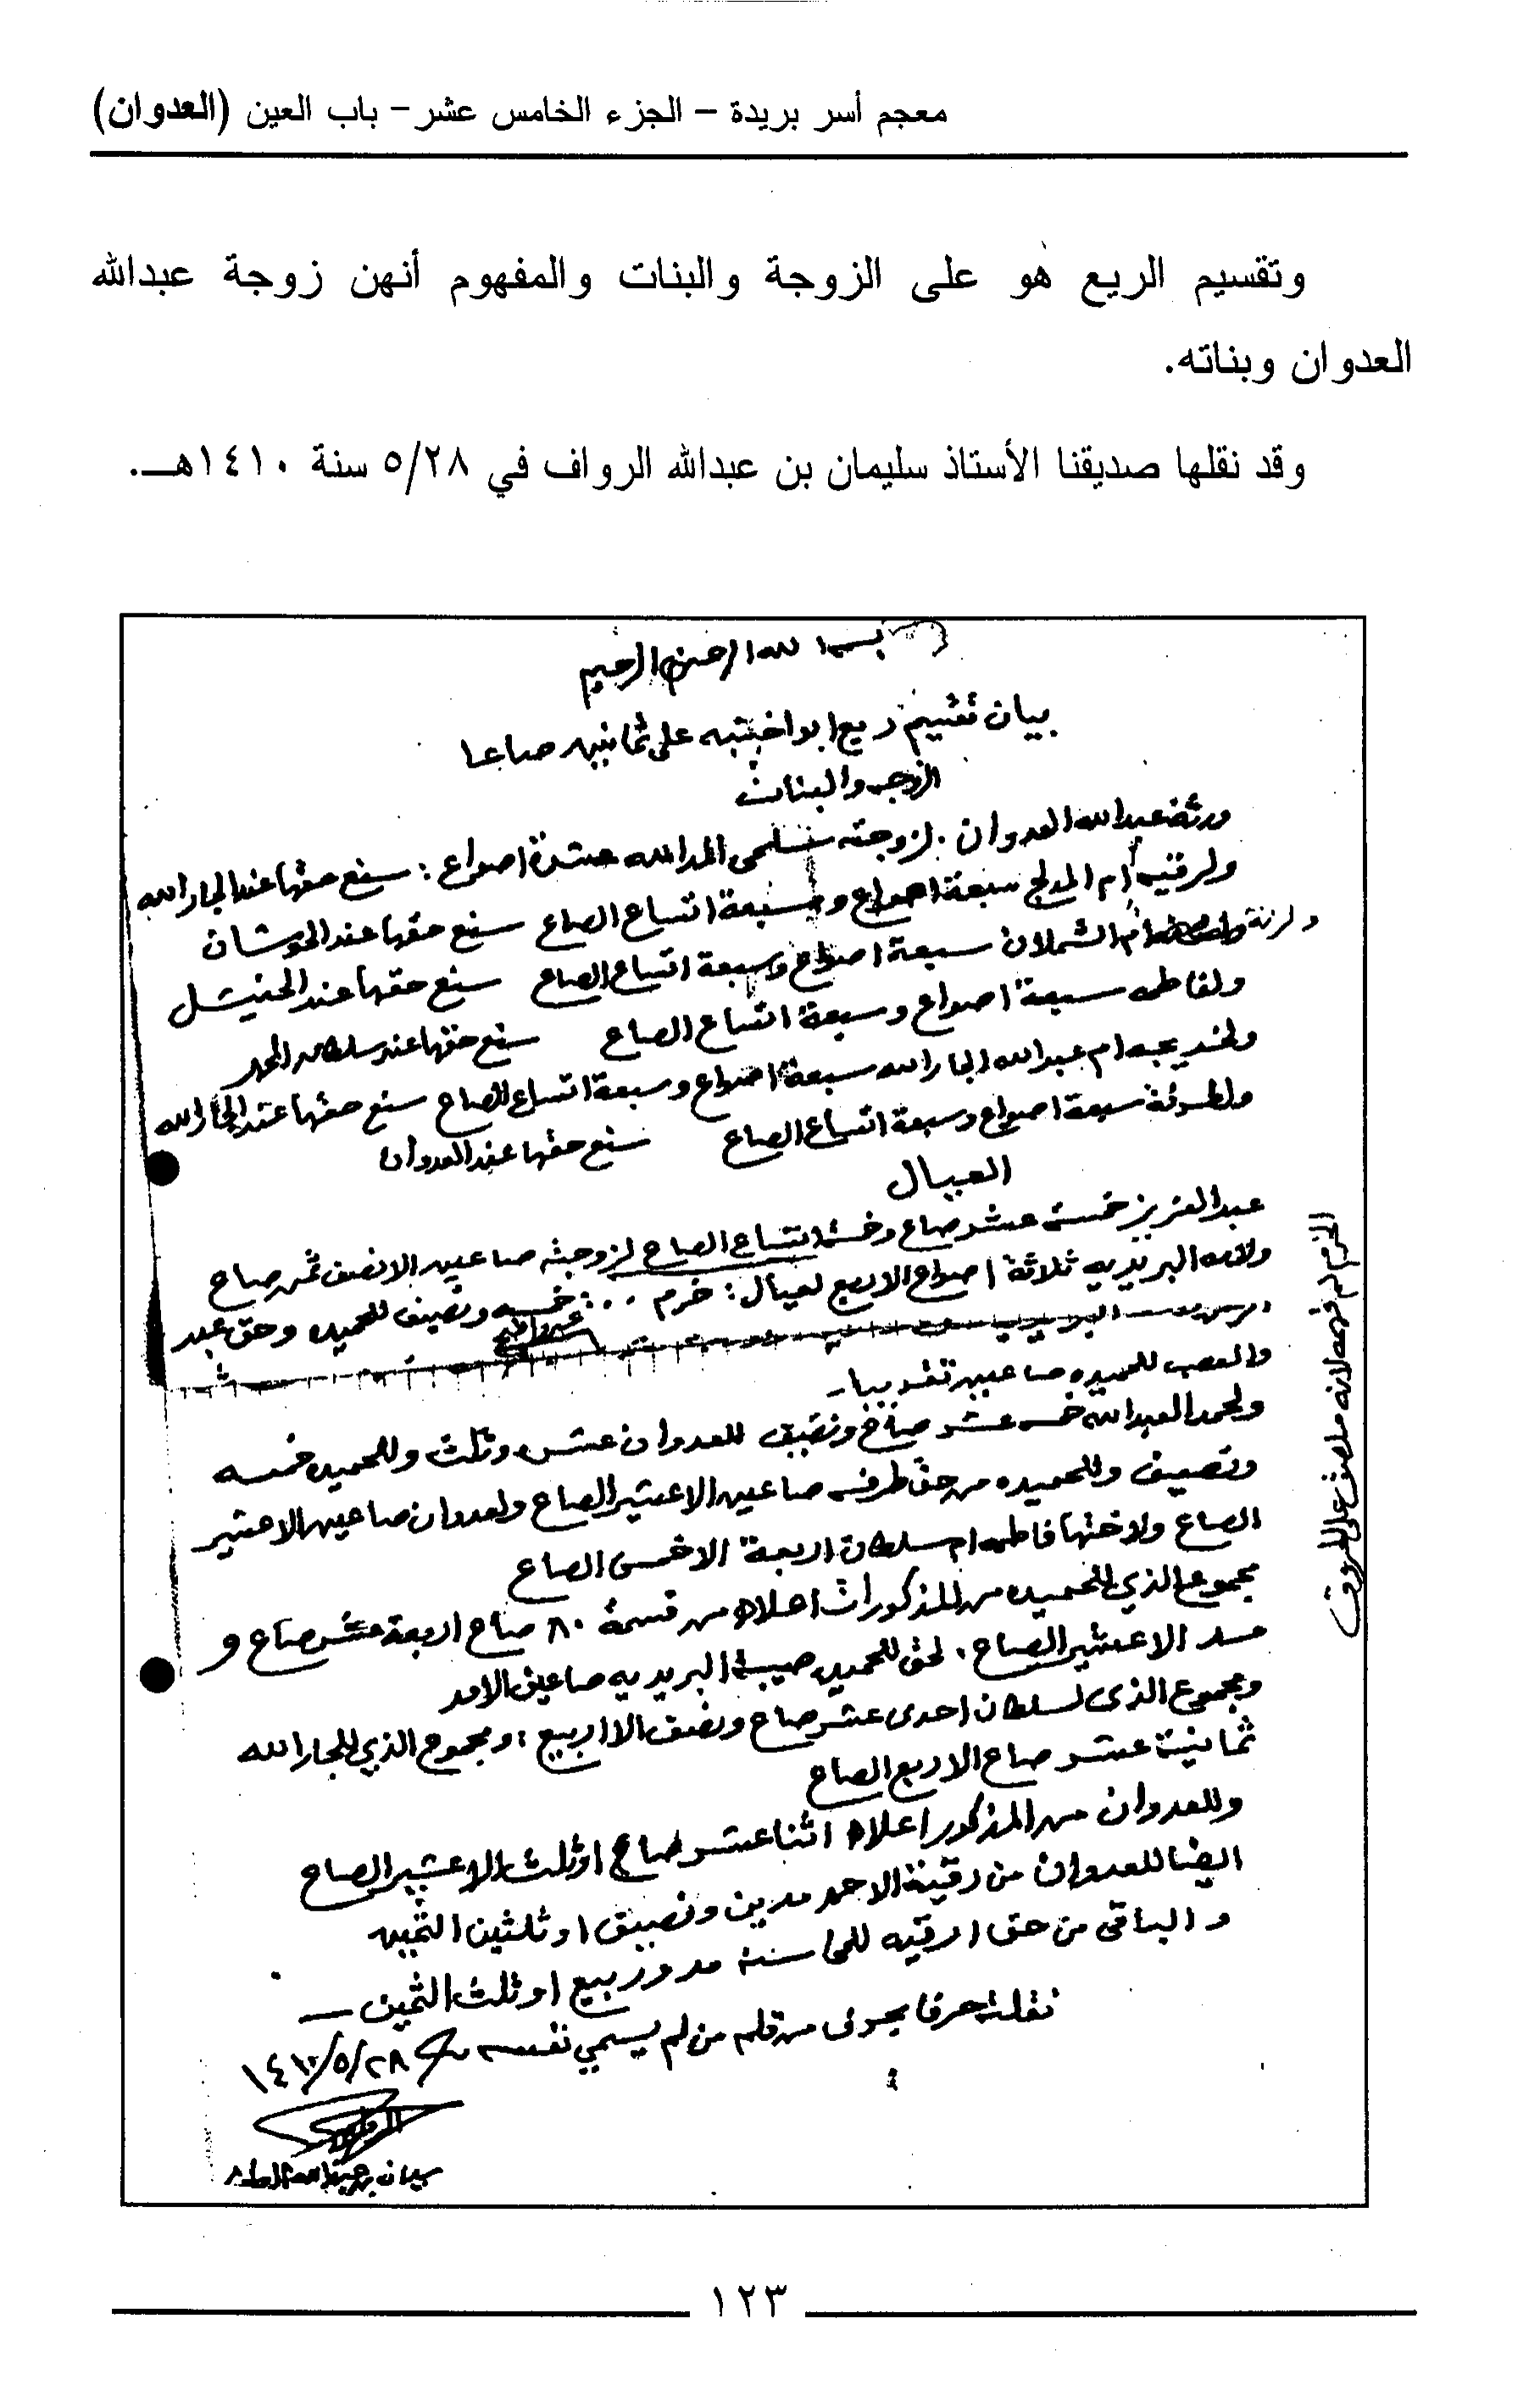 معجم أسر بريدة – الجزء الخامس عشر – باب العين (العدوان)
وتقسيم الريع هو على الزوجة والبنات والمفهوم أنهن زوجة عبدالله
العدوان وبناته.
وقد نقلها صديقنا الأستاذ سليمان بن عبدالله الرواف في ٥/٢٨ سنة ١٤١٠هـ.
بسم الله الرحمن الرحيم
بيان تقسيم ريع ابو اخثيبه على ثمانين صاعا
الزوجه والبنات
ورثة عبدالله العدوان . لزوجته سلمى المدالله عشرة اصواع : سنع حقها عند الجارالله
ولرقيه ام المدلج سبعة اصواع وسبعة اتساع الصاع سنع حقها عند الحوشان
ولزنة ام الشملان سبعة اصواع وسبعة اتساع الصاع سنع حقها عند
ولفاطمه سبعة اصواع وسبعة اتساع الصاع سنع حقها عند سلطان المحمد
ولخديجه ام عبدالله الجارالله سبعة اصواع وسبعة اتساع الصاع سنع حقها عند الجارالله
ولطرفة سبعة اصواع وسبعة اتساع الصاع سنع حقها عند العدوان
العيال
عبدالعزيز خمسة عشر صاع وخمسة اتساع الصاع لزوجته صاعين الا نصف ثمن صاع
ولامه البريديه ثلاثة اصواع الا ربع لعيال : خرم ... : خمسه ونصيف للحميده وحق عبد
والعصب للحميده صاعين تقريبا -
ولحمد العبدالله خمسه عشر صاع ونصيف للعدوان عشره وثلث وللحميده خمسه
ونصيف وللحميده من حق طرفه صاعين الا عشير الصاع ولعدوان صاعين الا عشير
الصاع ولاختها فاطمه ام سلطان اربعة الا خمس الصاع
مجموع الذي للحميده من المذكورات اعلاه من قسمة ٨٠ صاع اربعة عشر صاع و
مد الا عشير الصاع . لحق للحميده صيبة البريديه صاعين الا مد
ومجموع الذي لسلطان احدى عشر صاع ونصف الا اربيع : ومجموع الذي للجارالله
ثمانية عشر صاع الا ربع الصاع
وللعدوان من المذكور اعلاه اثنا عشر صاع اوثلث الا عشير الصاع
ايضا للعدوان من رقية الاحمد مدين ونصيف اوثلثين الثمين
والباقي من حق ارقيه للحاسنة مد وربيع اوثلث الثمين —
نقلته حرفا بحرف من قلم من لم يسمي نفسه ١٤١٠/٥/٢٨
سليمان بن عبدالله الرواف
الخرم لم افهمه لانه ملصق على الحروف
١٢٣